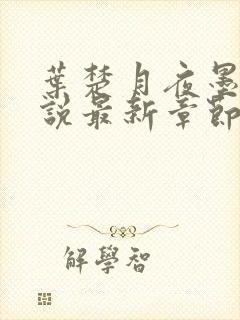 葉楚月夜墨
說最新章節
解學智